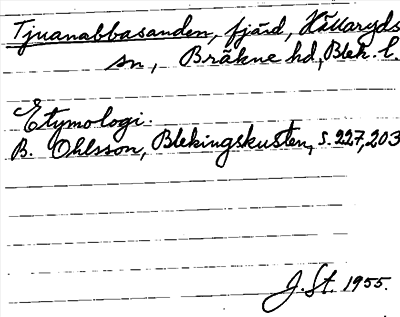 Tjuanabbasanden, fjärd, Hällaryds
sn, Bräkne hd, Blek. l.
Etymologi:
B. Ohlsson, Blekingskusten, s. 227, 203
J. St. 1955.